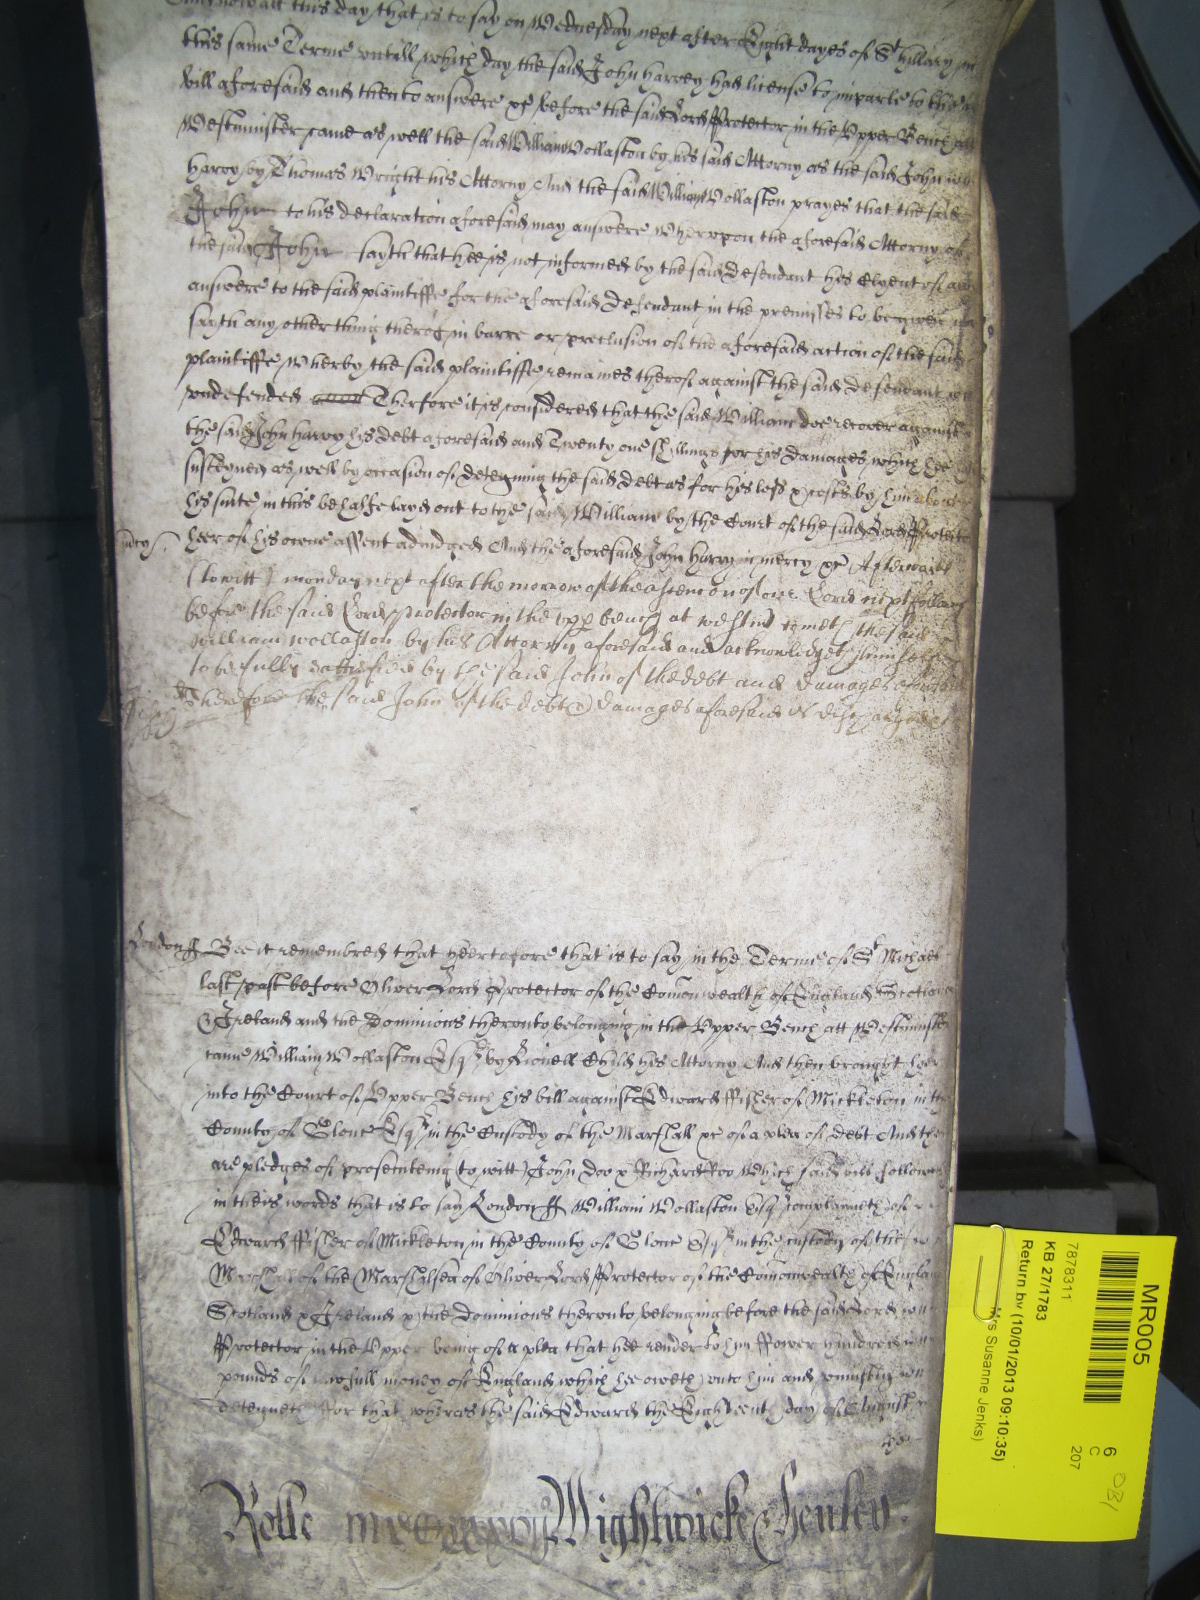 now att this day that is to say on Wednesday next after Eight dayes of St Hillary in
this same Terme untill which day the said John Harvey had license to imparle to the
bill aforesaid and then to answere &c before the said Lord Protector in the Upper Bench att
Westminster came as well the said William Wollaston by his said Attorny as the said John
Harvy by Thomas Wright his Attorny And the said William Wollaston prayes that the said
John to his declaration aforesaid may answere Wherupon the aforesaid Attorny of
the said John sayth that hee is not informed by the said defendant his Clyent of any
answere to the said plaintiffe for the aforesaid defendant in the premisses to bee
sayth any other thing therof in barre or preclusion of the aforesaid action of the said
plaintiffe Wherby the said plaintiffe remaines therof against the said defendant
undefended Therfore it is considered that the said William doe recover against
the said John Harvy his debt aforesaid and Twenty one shillings for his damages which hee
susteyned as well by occasion of deteyning the said debt as for his less & costs by him about
his suite in this behalfe layd out to the said William by the Court of the said Lord Protector
mercy heer of his owne assent adiudged And the aforesaid John Harvy in mercy &c Afterwards
(to witt) monday next after the morrow of the ascencion of our Lord next following
before the said Lord protector in the upp bench at westmr cometh the said
William wollaston by his Attorny aforesaid and acknowledgeth himselfe
to be fully sattisfied by the said John of the debt and damages aforesaid
Therefore the said John of the debt & damages aforesaid is discharged &c
London ss Bee it remembred that heertofore that is to say in the Terme of St Michael
last past before Oliver Lord Protector of the Comonwealth of England Scotland
& Ireland and the Dominions therunto belonging in the Upper Bench att Westminster
came William Wollaston Esqr by Lionell Child his Attorny And then brought heer
into the Court of Upper Bench his bill against Edward ffisher of Mickleton in the
County of Glouc Esqr in the Custody of the Marshall &c of a plea of debt And there
are pledges of prosecuteing (to witt) John Doo & Richard Roo Which said bill followeth
in theis words that is to say London ss William Wollaston Esqr complayneth of
Edward ffisher of Mickleton in the County of Glouc Esqr in the custody of the
Marshall of the Marshalsea of Oliver Lord Protector of the Comonwealth of England
Scotland & Ireland & the Dominions therunto belonging before the said Lord
Protector in the Upper being of a plea that hee render to him ffower hundred
pounds of lawfull money of England which hee oweth unto him and uniustly
deteyneth ffor that wheras the said Edward the Eighteenth day of August
the
Rolle Wightwicke Henley
MR005
7878311
KB 27/1783
Return by (10/01/2013 09:10:35)
Mrs Susanne Jenks)
6
C
207